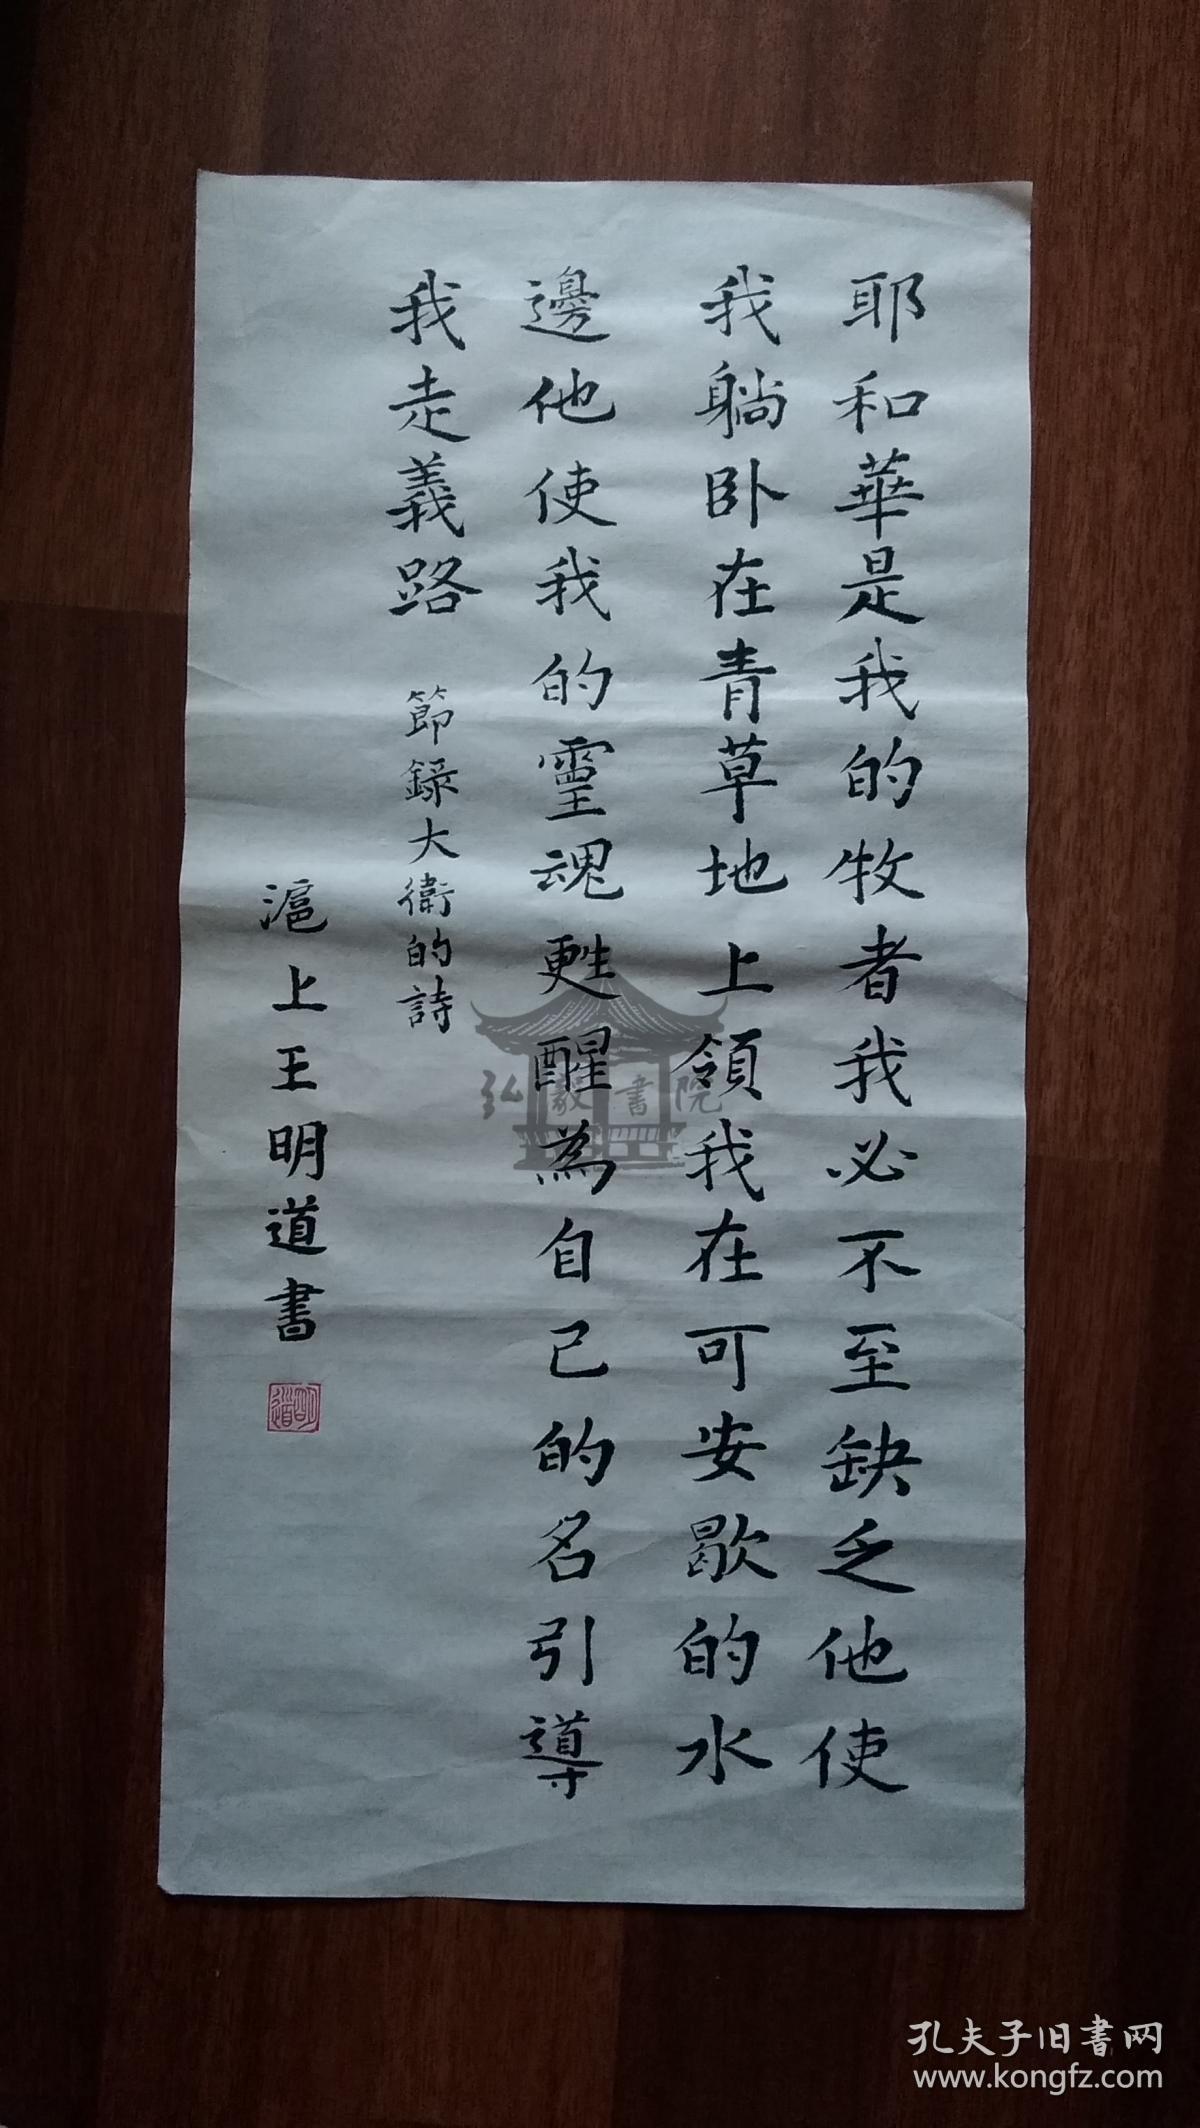 耶和華是我的牧者我必不至缺乏他使
我躺卧在青草地上領我在可安歇的水
邊他使我的靈魂甦醒為自己的名引導
我走義路
節錄大衛的詩
滬上王明道書
明道
弘毅書院
孔夫子旧書网
www.kongfz.com